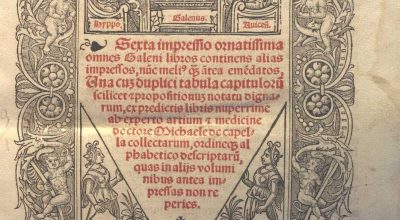 Hyppo. Galenus. Auicen.
Sexta impressio ornatissima
omnes Galeni libros continens alias
impressos, nūc meliꝰ ꝙ̄ ātea emēdatos,
Una cuꝫ duplici tabula capitulorū
scilicet ⁊ propositionuꝫ notatu dignarum,
ex predictis libris nuperrime
ab experto artium ⁊ medicine
doctore Michaele de capella
collectarum, ordineqꝫ alphabetico
descriptarū,
quas in alijs voluminibus
antea impressas
non reperies.